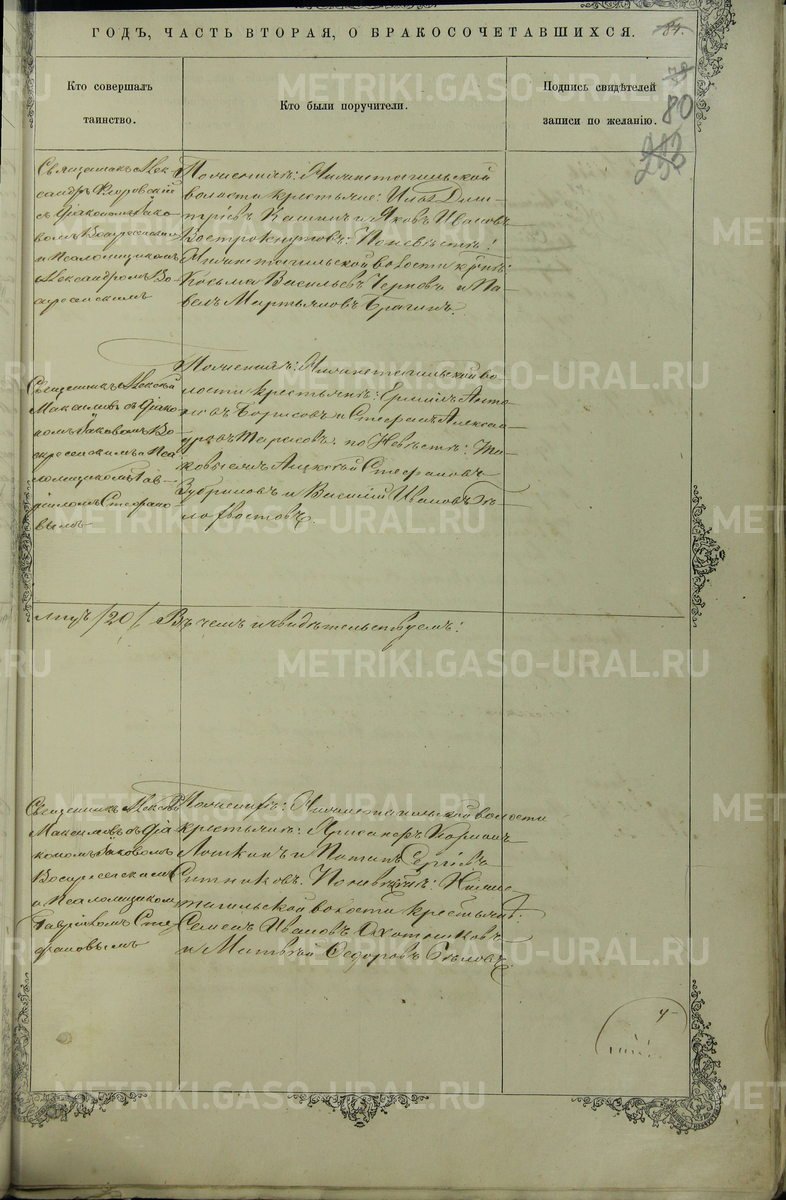 ГОДЪ, ЧАСТЬ ВТОРАЯ, О БРАКОСОЧЕТАВШИХСЯ.
84.
79
80
Кто совершалъ
таинство.
Кто были поручители.
Подпись свидѣтелей
записи по желанію.
METRIKI.GASO-URAL.RU
Священникъ Алек-
сандръ
съ Діакономъ Іако-
вомъ Воскресенским
и Псаломщикомъ
Александромъ Во-
скресенскимъ
По женихѣ: Нижнетагильской
волости крестьяне: Илья Дими-
тріевъ Кашинъ и Яковъ Ивановъ
Вострокнутовъ: По невѣстѣ:
Нижнетагильской волости кр-не:
Козьма Васильевъ Черновъ и Па-
велъ Мартьяновъ Брагинъ.
Священникъ Алексій
Максимовъ съ Діако-
номъ Іаковомъ Во-
скресенскимъ и Пса-
ломщикомъ Гав-
ріиломъ Стефано-
вымъ
По женихѣ: Нижнетагильской во-
лости крестьяне: Ермилъ Анто-
новъ Борисовъ и Стефанъ Алексан-
дровъ Тарасовъ: по Невѣстѣ: Та-
ковые же Алексѣй Стефановъ
Зубриловъ и Василій Ивановъ Бѣ-
лохвостовъ.
/20/ Въ чемъ и свидѣтельствуемъ:
Священникъ Алексій
Максимовъ съ Діа-
кономъ Іаковомъ
Воскресенскимъ
и Псаломщиком
Гавріиломъ Сте-
фановымъ
По женихѣ: Нижнетагильской волости
крестьяне:
и Сергіевъ
Ситниковъ. По невѣстѣ: Нижне-
тагильской волости крестьяне:
Семенъ Ивановъ Охотниковъ
и Матвѣй Ѳедоровъ